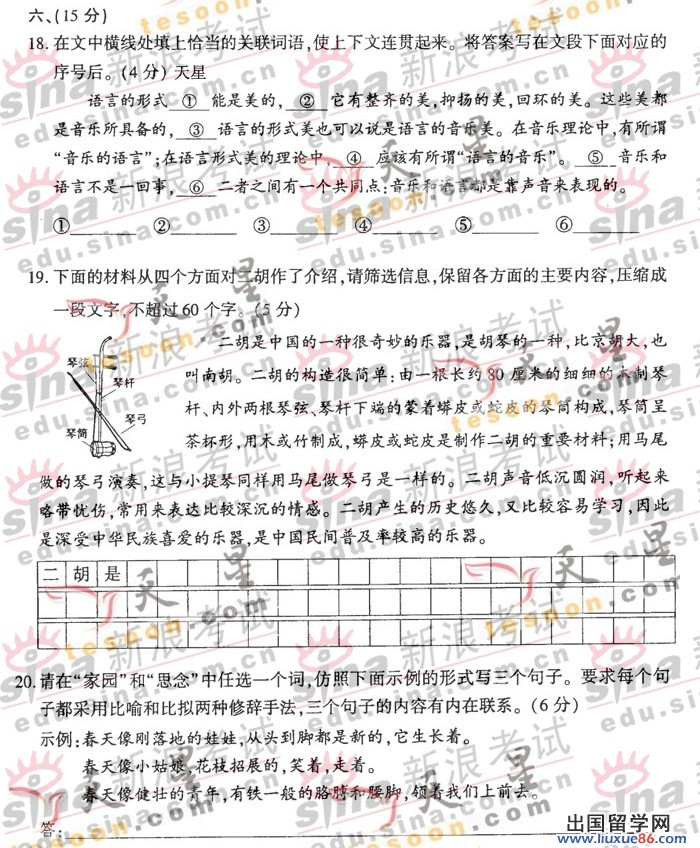 六、(15 分)
18. 在文中横线处填上恰当的关联词语,使上下文连贯起来。将答案写在文段下面对应的
序号后。(4 分) 天星
语言的形式 ① 能是美的, ② 它有整齐的美,抑扬的美,回环的美。这些美都
是音乐所具备的, ③ 语言的形式美也可以说是语言的音乐美。在音乐理论中,有所谓
“音乐的语言”;在语言形式美的理论中, ④ 应该有所谓“语言的音乐”。 ⑤ 音乐和
语言不是一回事, ⑥ 二者之间有一个共同点:音乐和语言都是靠声音来表现的。
①________ ②________ ③________ ④________ ⑤________ ⑥________
19. 下面的材料从四个方面对二胡作了介绍,请筛选信息,保留各方面的主要内容,压缩成
一段文字,不超过 60 个字。(5 分)
二胡是中国的一种很奇妙的乐器,是胡琴的一种,比京胡大,也
叫南胡。二胡的构造很简单:由一根长约 80 厘米的细细的木制琴
杆、内外两根琴弦、琴杆下端的蒙着蟒皮或蛇皮的琴筒构成,琴筒呈
茶杯形,用木或竹制成,蟒皮或蛇皮是制作二胡的重要材料;用马尾
做的琴弓演奏,这与小提琴同样用马尾做琴弓是一样的。二胡声音低沉圆润,听起来
略带忧伤,常用来表达比较深沉的情感。二胡产生的历史悠久,又比较容易学习,因此
是深受中华民族喜爱的乐器,是中国民间普及率较高的乐器。
琴弦
琴杆
琴弓
琴筒
二胡是
20. 请在“家园”和“思念”中任选一个词,仿照下面示例的形式写三个句子。要求每个句
子都采用比喻和比拟两种修辞手法,三个句子的内容有内在联系。(6 分)
示例:春天像刚落地的娃娃,从头到脚都是新的,它生长着。
春天像小姑娘,花枝招展的,笑着,走着。
春天像健壮的青年,有铁一般的胳膊和腰脚,领着我们上前去。
答:
出国留学网
www.liuxue86.com
sina 新浪考试
edu.sina.com.cn
天星
tesoon.com